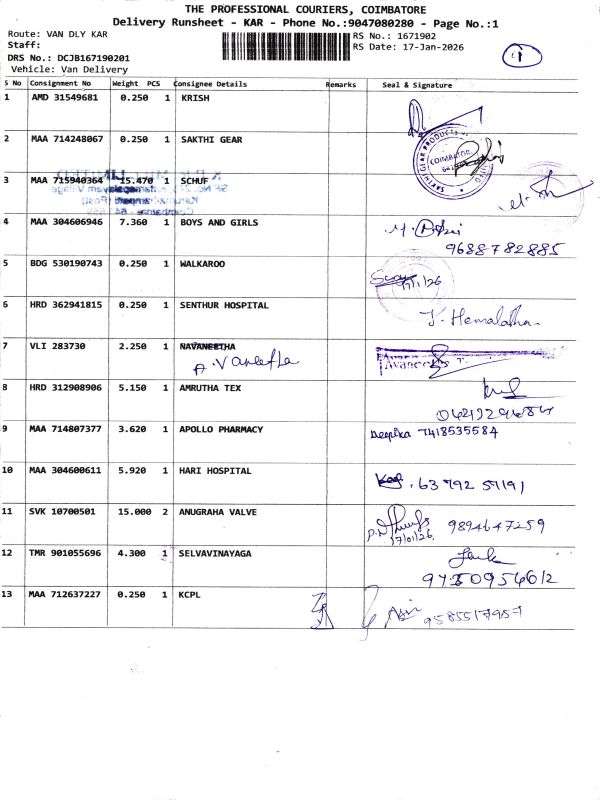 THE PROFESSIONAL COURIERS, COIMBATORE
Delivery Runsheet - KAR - Phone No.:9047080280 - Page No.:1
Route: VAN DLY KAR
RS No.: 1671902
Staff:
RS Date: 17-Jan-2026
1
DRS No.: DCJB167190201
Vehicle: Van Delivery
S No Consignment No Weight PCS Consignee Details Remarks Seal & Signature
1 AMD 31549681 0.250 1 KRISH
2 MAA 714248067 0.250 1 SAKTHI GEAR
SAKTHI GEAR PRODUCTS
COIMBATORE
3 MAA 715940364 15.470 1 SCHUF
4 MAA 304606946 7.360 1 BOYS AND GIRLS
9688782885
5 BDG 530190743 0.250 1 WALKAROO
17/1/26
6 HRD 362941815 0.250 1 SENTHUR HOSPITAL
J. Hemalatha
7 VLI 283730 2.250 1 NAVANEETHA
A. Vaneetha
8 HRD 312908906 5.150 1 AMRUTHA TEX
9 MAA 714807377 3.620 1 APOLLO PHARMACY Deepika 7418535584
10 MAA 304600611 5.920 1 HARI HOSPITAL
11 SVK 10700501 15.000 2 ANUGRAHA VALVE
9894647259
17/01/26
12 TMR 901055696 4.300 1 SELVAVINAYAGA
13 MAA 712637227 0.250 1 KCPL